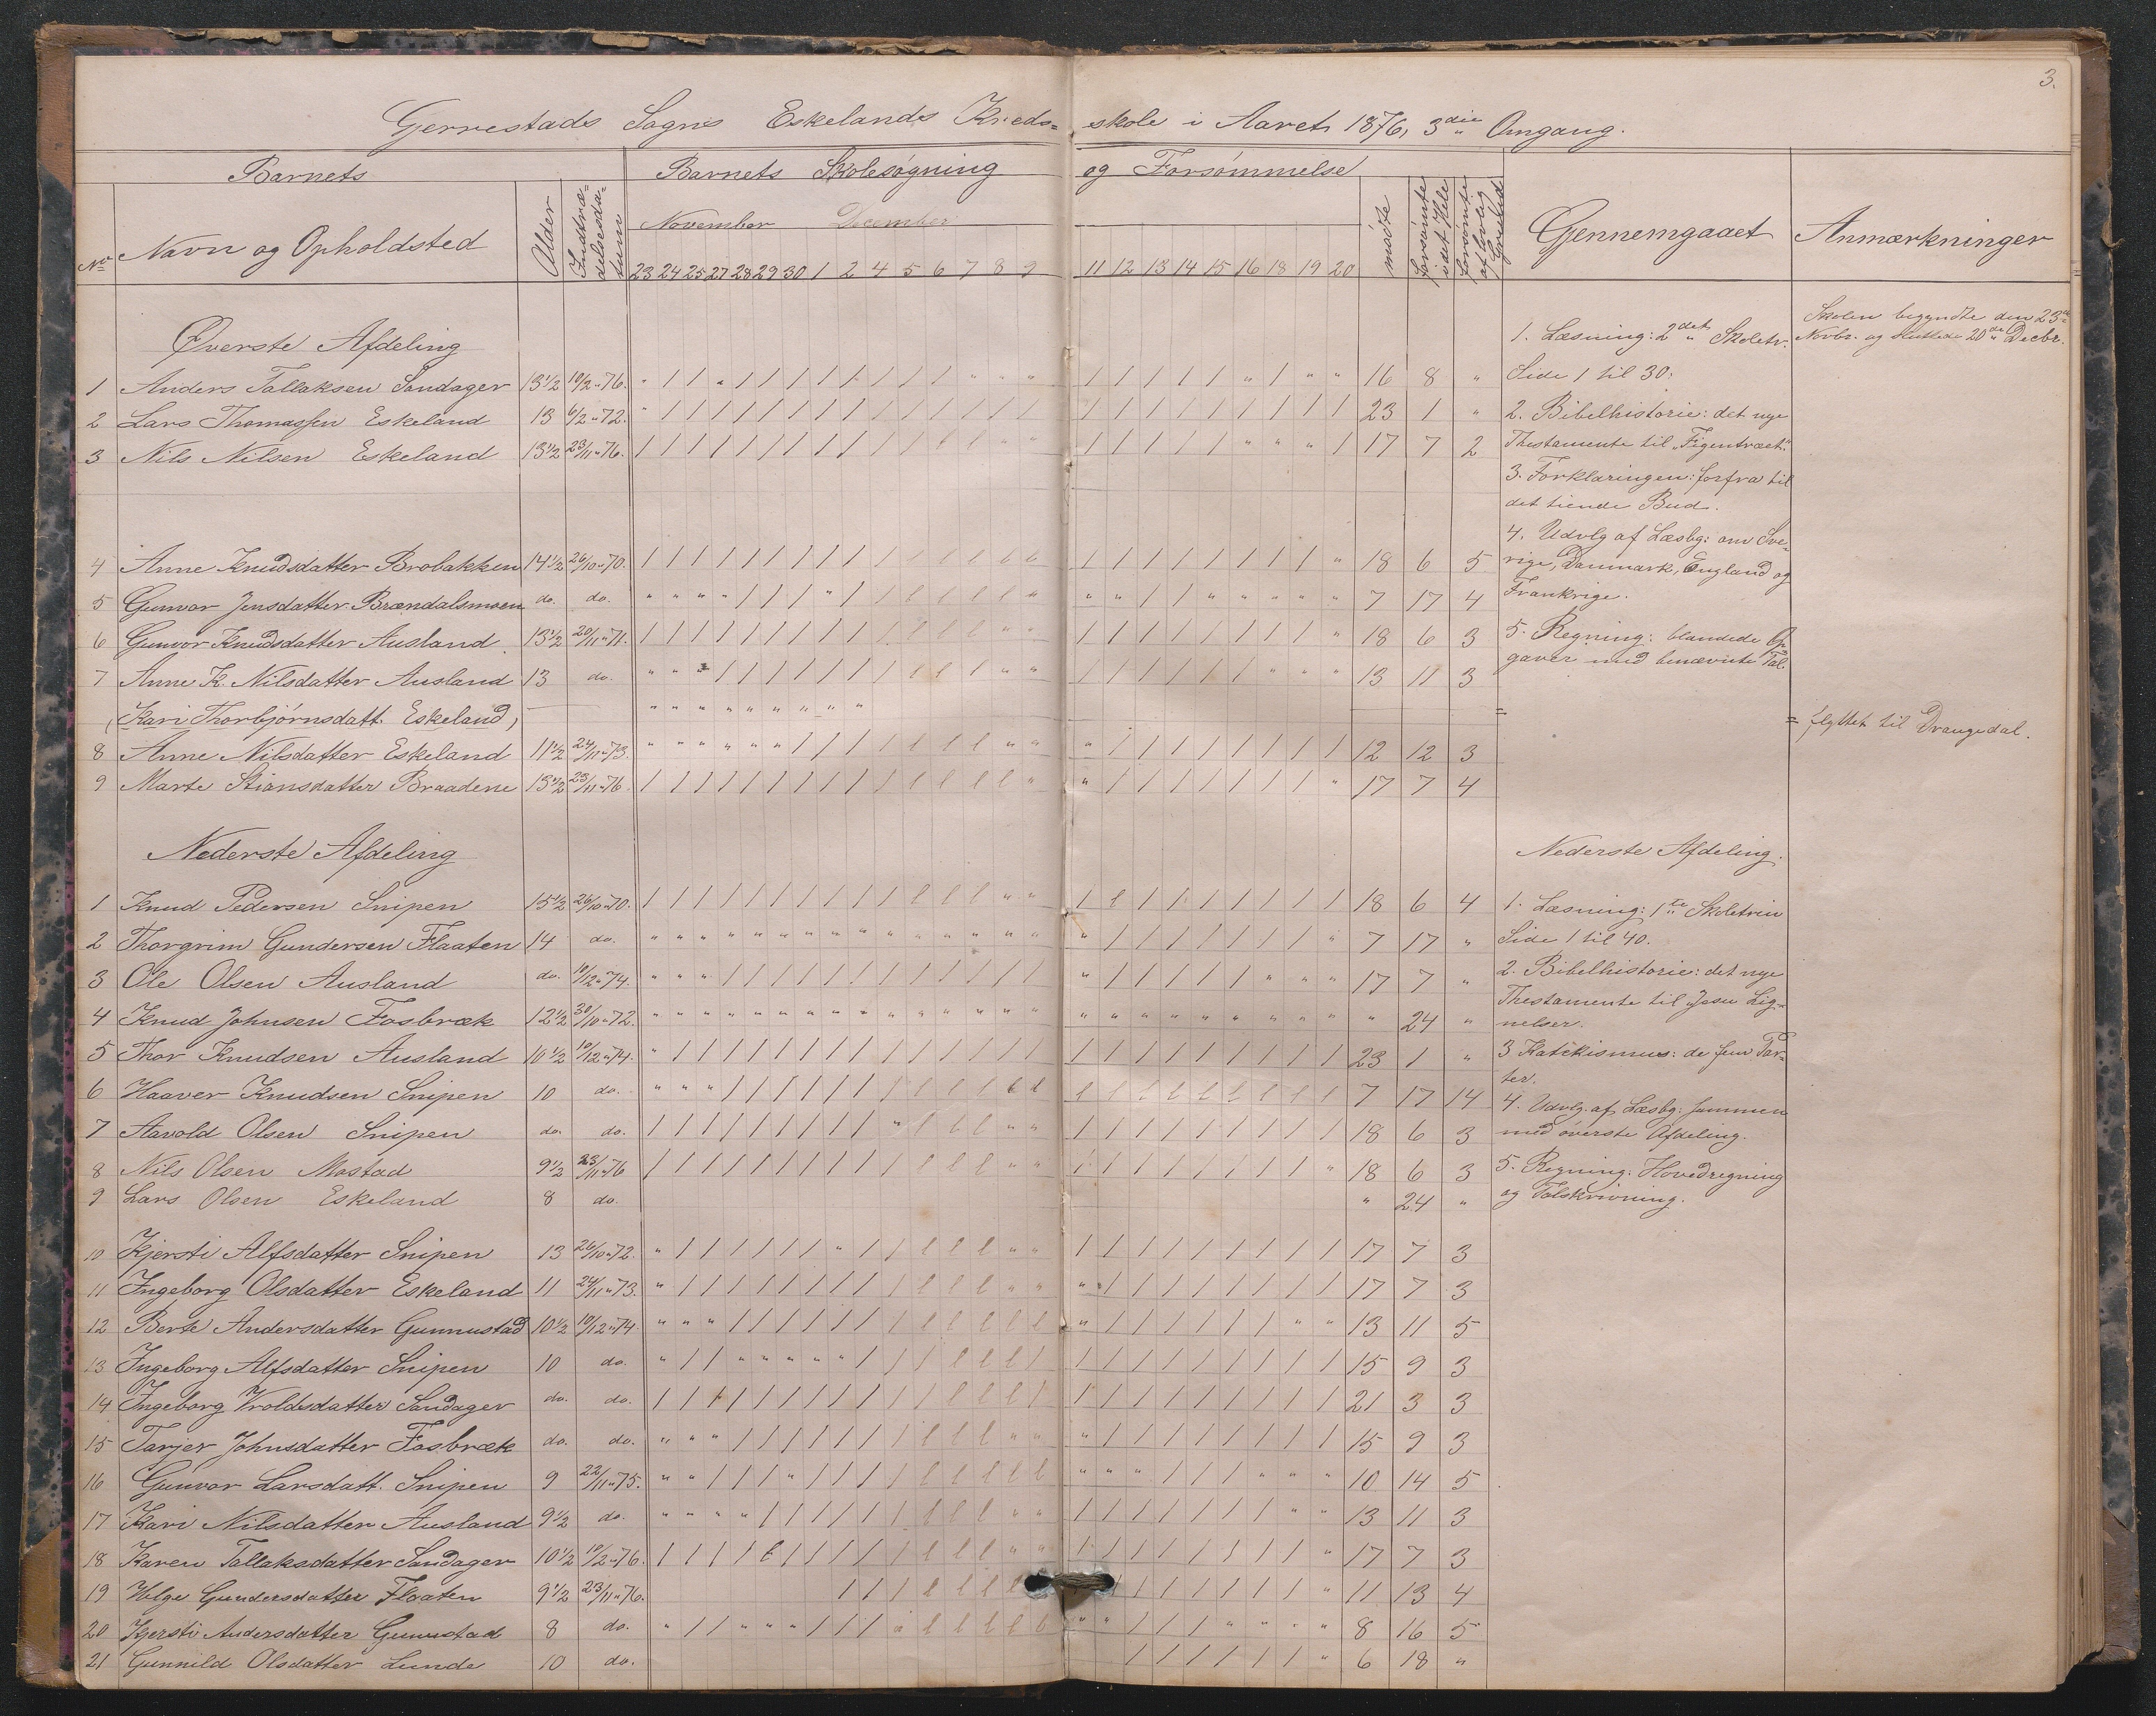 3.
Gjerrestads Sogns Eskelands Kreds= skole i Aaret 1876, 3die Omgang.
Barnets Barnets Skolesøgning og Forsømmelse
No Navn og Opholdsted Alder Indtrædelsesdatum November December mødte forsømte i det Hele forsømte af lovlig Grund Gjennemgaaet Anmærkninger
23 24 25 27 28 29 30 1 2 4 5 6 7 8 9 11 12 13 14 15 16 18 19 20
Øverste Afdeling
1 Anders Tallaksen Sandager 13 1/2 10/2 " 76. 16 8 "
2 Lars Thomassen Eskeland 13 6/2 " 72. 23 1 "
3 Nils Nilsen Eskeland 13 1/2 23/11 " 76. 17 7 2
4 Anne Knudsdatter Brobakken 14 1/2 26/10 " 70. 18 6 5
5 Gunvor Jensdatter Brændalsmoen do. do. 7 17 4
6 Gunvor Knudsdatter Ausland 13 1/2 20/11 " 71. 18 6 3
7 Anne K. Nilsdatter Ausland 13 do. 13 11 3
(Kari Thorbjørnsdatt. Eskeland)
8 Anne Nilsdatter Eskeland 11 1/2 24/11 " 73. 12 12 3
9 Marte Stiansdatter Braadene 13 1/2 23/11 " 76. 17 7 4
Nederste Afdeling
1 Knud Pedersen Snipen 15 1/2 26/10 " 70. 18 6 4
2 Thorgrim Gundersen Flaaten 14 do. 7 17 "
3 Ole Olsen Ausland do. 10/12 " 74. 17 7 "
4 Knud Johnsen Fosbræk 12 1/2 30/10 " 72. " 24 "
5 Thor Knudsen Ausland 10 1/2 10/12 " 74. 23 1 "
6 Haaver Knudsen Snipen 10 do. 7 17 14
7 Aavold Olsen Snipen do. do. 18 6 3
8 Nils Olsen Mostad 9 1/2 23/11 " 76 18 6 3
9 Lars Olsen Eskeland 8 do. " 24 "
10 Kjersti Alfsdatter Snipen 13 26/10 " 72. 17 7 3
11 Ingeborg Olsdatter Eskeland 11 24/11 " 73. 17 7 3
12 Berte Andersdatter Gunnustad 10 1/2 10/12 " 74. 13 11 5
13 Ingeborg Alfsdatter Snipen 10 do. 15 9 3
14 Ingeborg Vroldsdatter Sandager do. do. 21 3 3
15 Tarjer Johnsdatter Fosbræk do. do. 15 9 3
16 Gunvor Larsdatt. Snipen 9 22/11 " 75. 10 14 5
17 Kari Nilsdatter Ausland 9 1/2 do. 13 11 3
18 Karen Tallaksdatter Sandager 10 1/2 10/2 " 76. 17 7 3
19 Helge Gundersdatter Flaaten 9 1/2 23/11 " 76. 11 13 4
20 Kjersti Andersdatter Gunnustad 8 do. 8 16 5
21 Gunnild Olsdatter Lunde 10 do. 6 18 "
1. Læsning: 2det Skoletr.
Side 1 til 30.
2. Bibelhistorie: det nye
Thestamente til "Figentræet".
3. Forklaringen: forfra til
det tiende Bud.
4. Udvlg af Læsbg: om Sve-
rige, Danmark, England og
Frankrige.
5. Regning: blandede Op=
gaver med benævnte Tal.
Nederste Afdeling.
1. Læsning: 1te Skoletrin
Side 1 til 40.
2. Bibelhistorie: det nye
Thestamente til Jesu Lig=
nelser.
3 Katekismus: de fem Par=
ter.
4. Udvlg. af Læsbg: sammen
med øverste Afdeling.
5. Regning: Hovedregning
og Talskrivning.
Skolen begyndte den 23de
Novbr. og sluttede 20de Decbr.
= flyttet til Drangedal.